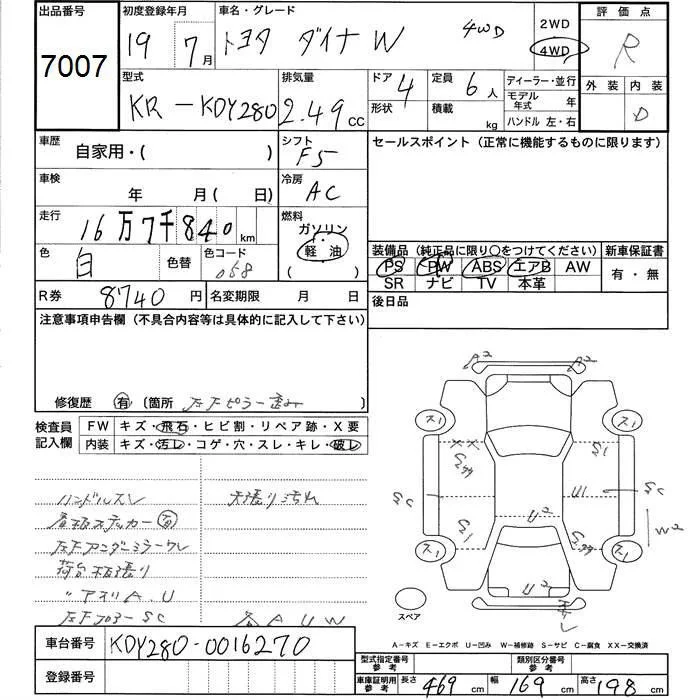 出品番号 7007
初度登録年月 19 7月
車名・グレード トヨタ ダイナ W 4WD
2WD
4WD
評価点 R
外装 内装 D
型式 KR-KDY280
排気量 2.49 cc
ドア形状 4
定員 6人
積載 kg
ディーラー・並行
モデル年式 年
ハンドル 左・右
車歴 自家用・( )
シフト F5
セールスポイント(正常に機能するものに限ります)
車検 年 月(日)
冷房 AC
走行 16万7千840km
燃料 ガソリン・軽油 ( )
色 白 色替 色コード 058
装備品(純正品に限り○をつけてください)
PS PW ABS エアB AW
SR ナビ TV 本革
新車保証書 有・無
R券 8740円 名変期限 月 日
後日品
注意事項申告欄(不具合内容等は具体的に記入して下さい)
修復歴 有 (箇所 左Fピラー歪み
検査員記入欄
FW キズ・飛石・ヒビ割・リペア跡・X要
内装 キズ・汚レ・コゲ・穴・スレ・キレ・破レ
ハンドルスレ 天張り汚れ
左Fアンダーミラーワレ
荷台板張り
〃アオリA.U
左Fフロアー SC 各AUW
A2 A2
ス1 ス1
XX
S1
SC U1 SC
U2 W2
S1
ス1 ス1
U2
スペア
A-キズ E-エクボ U-凹み W-補修跡 S-サビ C-腐食 XX-交換済
車台番号 KDY280-0016270
登録番号
型式指定番号参考 類別区分番号参考
車庫証明用参考 長さ 469cm 幅 169cm 高さ 198cm